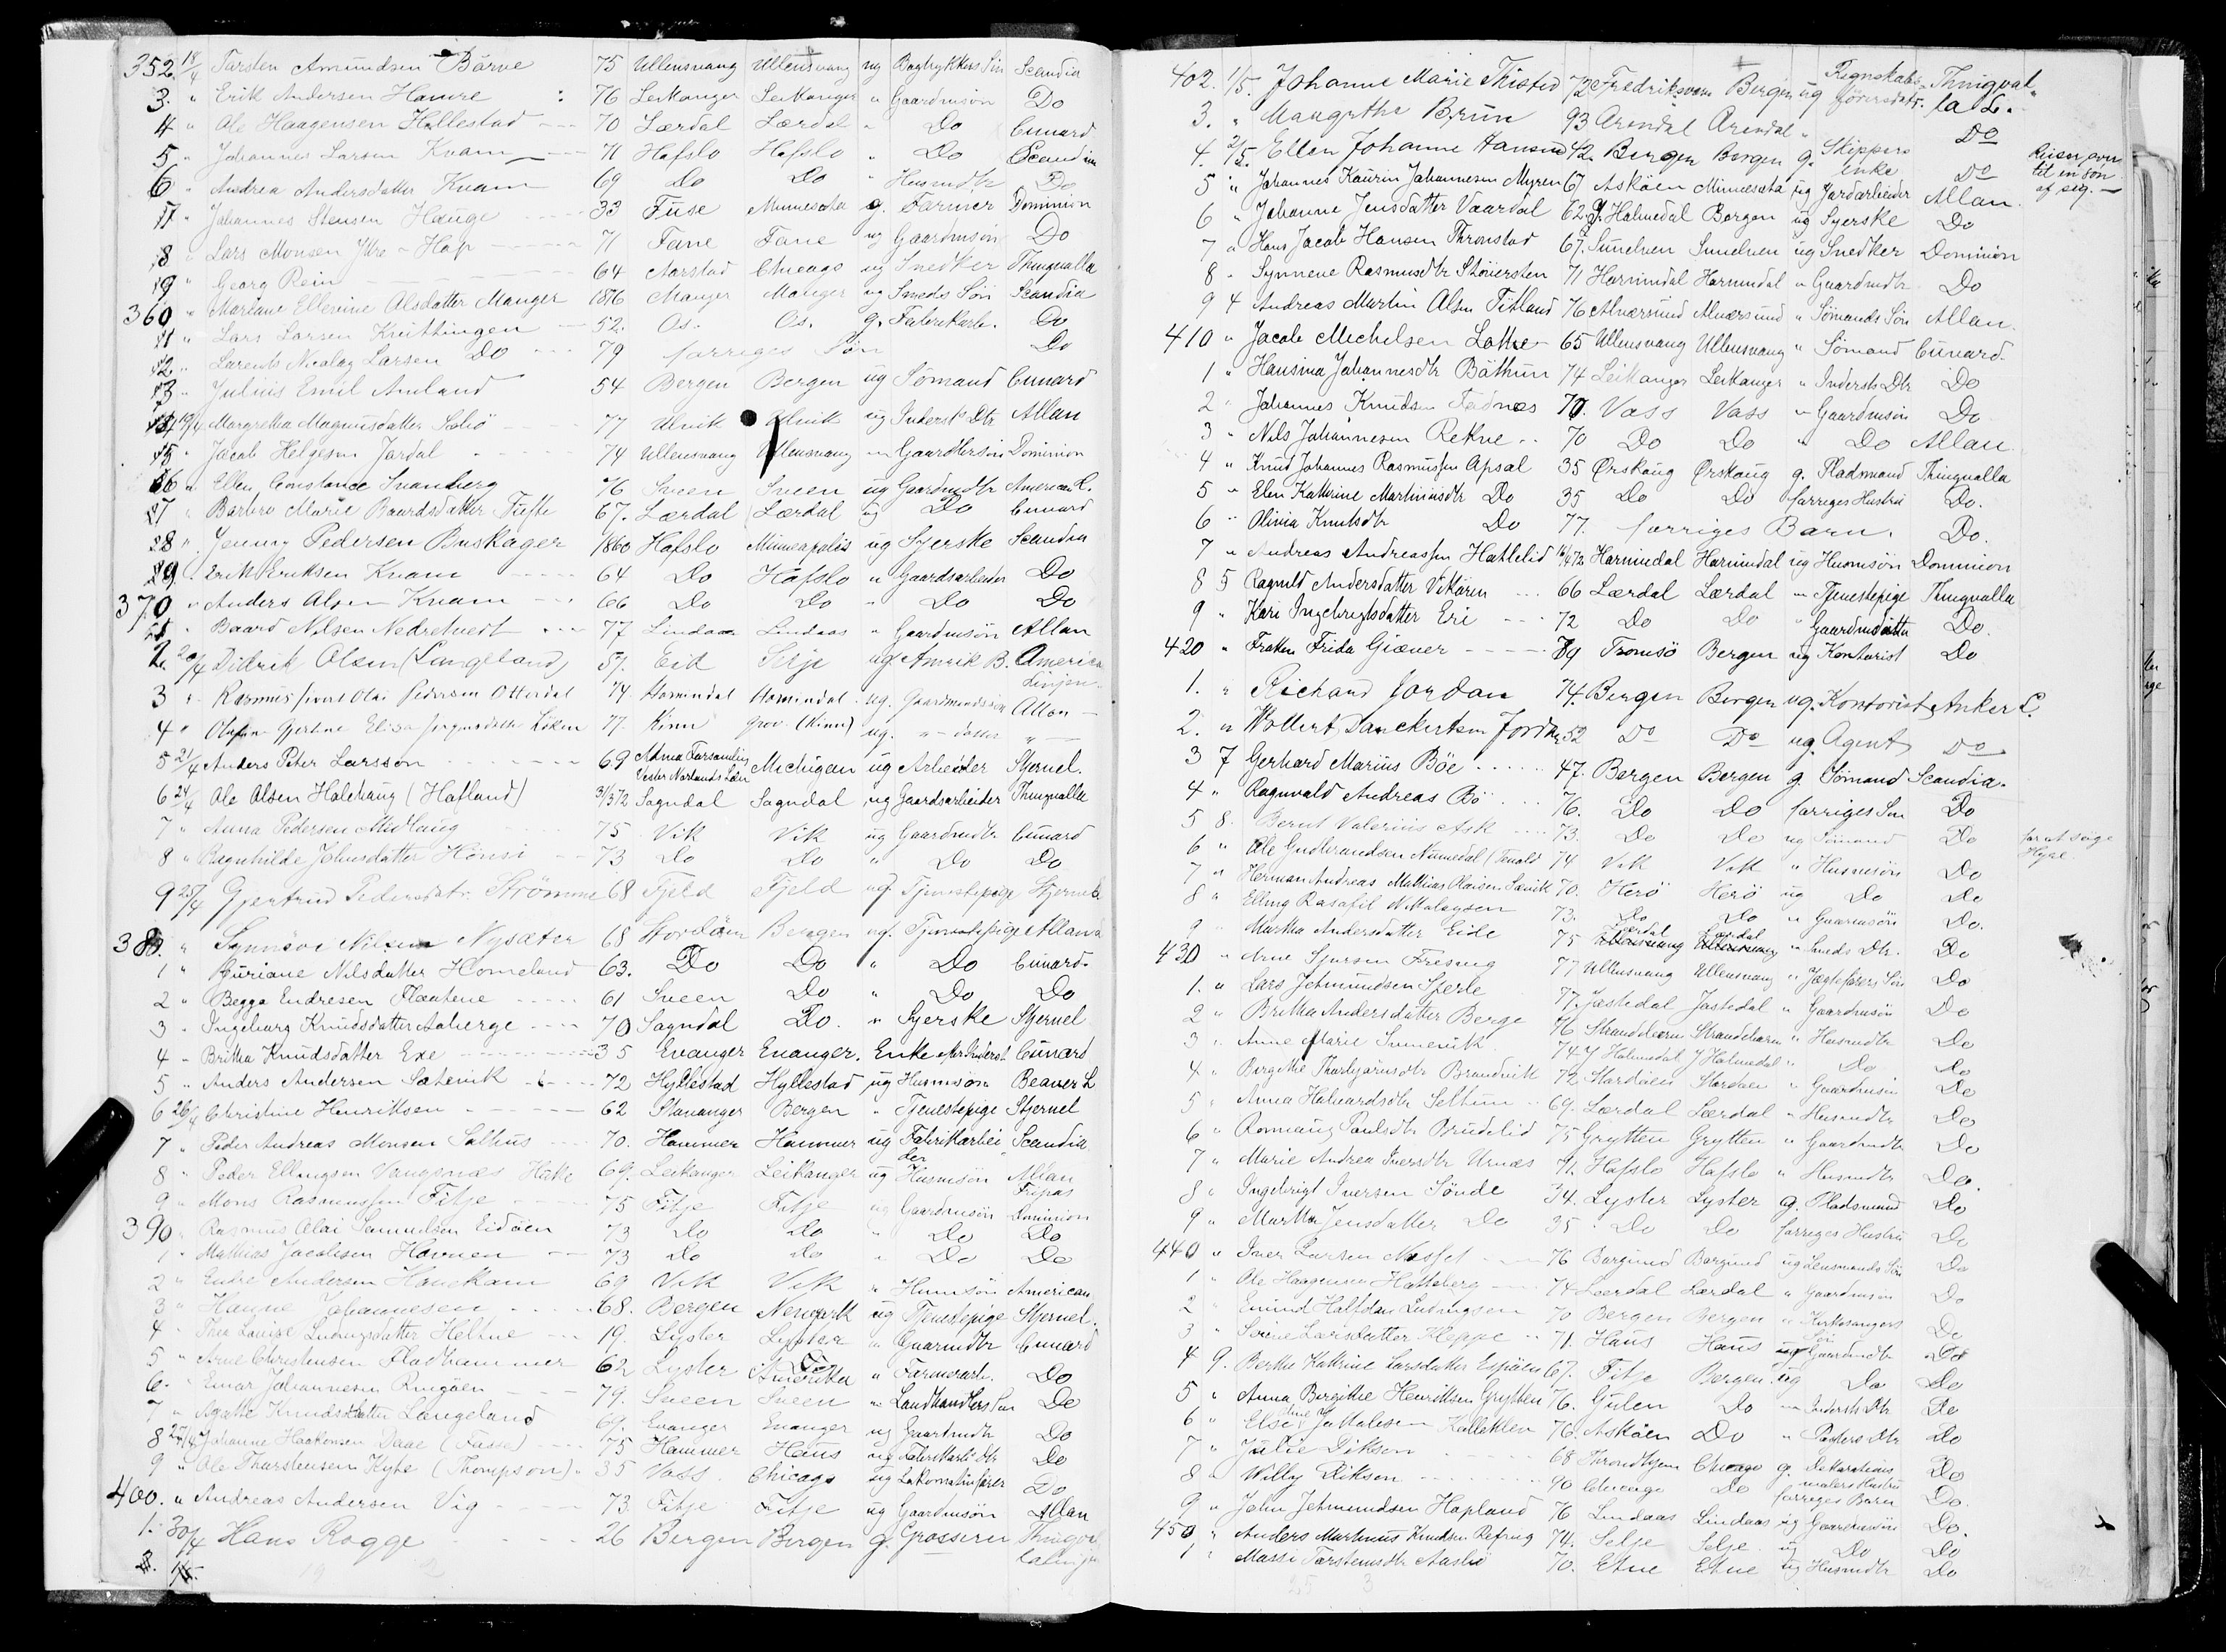 352. 18/4 Torsten Amundsen Børve 75 Ullensvang Ullensvang ug Bogtrykkers Søn Scandia
3. " Erik Andersen Hamre : 76 Leikanger Leikanger " Gaardmsön Do
4 " Ole Haagensen Hellestad 70 Lærdal Lærdal " Do Cunard
5 " Johannes Larsen Kvam 71 Hafslo Hafslo " Do Scandia
6 " Andrea Andersdatter Kvam 69 Do Do " Husmdtr Do
7 " Johannes Stensen Hauge 33 Fuse Minnesota g. Farmer Dominion
8 " Lars Monsen Ytre - Hop 71 Fane Fane ug Gaardmsön Do
9 " Georg Rein 64 Aarstad Chicago ug Snedker Thingvalla
360 " Mariane Ellevine Olsdatter Manger 1876 Manger Manger ug Smeds Søn Scandia
1 " Lars Larsen Knittingen 52. Os. Os. g. Fabrikarb. Do
2 " Larents Nicolay Larsen Do 79 forriges Søn Do
3 " Julius Emil Amland 54 Bergen Bergen ug Sømand Cunard
4 19/4 Margretha Magnusdatter Sæbö 77 Ulvik Ulvik ug Inderst Dtr Allan
5 " Jacob Helgesen Jordal 74 Ullensvang Ullensvang " Gaardbersön Dominion
6 " Ellen Constance Svanberg 76 Sveen Sveen ug Gaardmdtr American L.
7 " Barbro Marie Baardsdatter Tufte 67. Lærdal Lærdal ug Do Cunard
8 " Jenny Pedersen Buskager 1860 Hafslo Minneapolis ug Syerske Scandia
9 " Erik Eriksen Kvam 64 Do Hafslo " Gaardsarbeider Do
370 " Anders Olsen Kvam 66 Do Do " Do Do
1 " Baard Nilsen Nedretvedt 77 Lindaas Lindaas " Gaardmsön Allan
2. 20/4 Didrik Olsen (Langeland) 57. Eid Selje ug Amrik B. America
Linjen
3 " Rasmus Sivert Olai Pedersen Otterdal 74 Hornindal Hornindal ug. Gaardmandssøn Allan
4 " Gjertine Elisa Løken 77. Kinn Grov (Kinn) ug. " - datter " -
5 21/4 Anders Peter Larsson 69 Michigan ug Arbeider Stjernel.
6 24/4 Ole Olsen Halehaug (Hafland) 31/3 72 Sogndal Sogndal ug Gaardsarbeider Thingvalla
7 " Anna Pedersen Midhaug 75. Vik Vik ug Gaardmdtr Cunard
8 " Ragnhilde Johnsdatter Hönsi 73 Do Do " Do Do
9 25/4 Gjertrud Pedersdatr. Strömme 68 Fjeld Fjeld ug. Tjenestepige Stjernel.
380. " Synnöve Nilsen Nysæter 68 Stordöen Bergen ug. Tjenestepige Allan
1 " Guriane Nilsdatter Homeland 63. Do Do " Do Cunard.
2 " Begga Endresen Flaatene 61 Sveen Do " Do Do
3 " Ingeborg Knudsdatter Aaberge 70 Sogndal Do. " Syerske Stjernel
4 " Britha Knudsdatter Exe 35 Evanger Evanger. Enke efter Inderst Cunard
5 " Anders Andersen Sætenik 72 Hyllestad Hyllestad ug Husmsön Beaver L
6 26/4 Christine Henriksen 62 Stavanger Bergen " Tjenestepige Stjernel
7 " Peder Andreas Monsen Salhus 70. Hammer Hammer ug Fabrikarbei Scandia
der
8 " Peder Ellingsen Vangsnæs 69. Leikanger Leikanger ug Husmsön Allan
Fripas
9 " Mons Rasmussen Fitje 75 Fitje Fitje ug Gaardmsön Dominion
390 " Rasmus Olai Samuelsen Eidöen 73 Do Do " Do Do
1 " Mathias Jacobsen Havnen 73 Do Do " Do Do
2 " Endre Andersen Hønekam 69 Vik Vik " Husmsön American
3 " Hanne Johannesen 68. Bergen Newyork ug Tjenestepige Stjernel.
4 " Thea Lovise Ludvigsdatter Heltne 19. Lyster Lyster " Gaarmdtr Cunard
5 " Arne Christensen Fladhammer 62 Lyster Amerika " Farmerarb. Do
6. " Einar Johannesen Ringöen 79. Sveen Sveen " Landhandlers Søn Do
7 " Agathe Knudsdatter Langeland 69. Evanger Evanger ug Gaardmdtr Do
8 27/4 Johanne Haakonsen Daae (Fasse) 75 Hammer Haus ug Fabrikarb. dtr Do
9 " Ole Thorstensen Kyte (Thompson) 35 Voss. Chicago ug Lokomotivfører Do
400. " Andreas Andersen Vig 73 Fitje Fitje ug Gaardmsön Allan
1. 30/4 Hans Rogge 26 Bergen Bergen g. Grosserer Thingval
lalinjen
402. 1/5. Johanne Marie Thisted 72 Fredriksværn Bergen ug Regnskabs- Thingval
førersdatr. la L.
3. " Mangrethe Brun 93 Arendal Arendal " Do
4. 2/5. Ellen Johanne Hansen 42. Bergen Bergen g. Skippers
enke Do Reiser over
til en Søn
af sig. -
5 " Johannes Kaurin Johannesen Myren 67. Askøen Minnesota ug Jordarbeider Allan.
6 " Johanne Jensdatter Vaardal 62 Y. Holmedal Bergen ug Syerske Do
7 " Hans Jacob Hansen Thronstad 67. Sunelven Sunelven ug Snedker Dominion
8 " Synneve Rasmusdtr Støversten 71 Hornindal Hornindal " Gaardmdtr Do
9 4 Andreas Martin Olsen Titland 76 Alversund Alversund " Sømands Søn Allan.
410 " Jacob Michelsen Lothe 65 Ullensvang Ullensvang " Sömand Cunard.
1 " Hansina Johannesdtr Böthun 74 Leikanger Leikanger " Inderst Dtr Do
2 " Johannes Knudsen Fadnes 70. Voss Voss " Gaardmsön Do
3 " Nils Johannesen Rekve 70 Do Do " Do Allan.
4 " Knud Johannes Rasmussen Apsal 35 Ørskoug Ørskoug g. Pladsmand Thingvalla
5 " Elen Kathrine Martinusdtr Do 35 Do Do forriges Hustru Do.
6 " Olivia Knutsdtr Do 77. forriges Barn. Do.
7 " Andreas Andreassen Hattelid 72 Hornindal Hornindal ug Husmsön Dominion
8 5 Ragnild Andersdatter Vikören 66 Lærdal Lærdal " Tjenestepige Thingvalla
9 " Kari Ingebrigtsdatter Eri 72 Do Do " Gaardmdatter Do.
420 " Frøken Frida Giæver 79 Tromsö Bergen ug Kontorist Do
1. " Richard Jordan 74. Bergen Bergen ug. Kontorist Anker L.
2. " Wollert Danckertsen Jordan 52 Do Do ug. Agent Do
3 7 Gerhard Marius Böe 47. Bergen Bergen g. Sömand Scandia.
4 " Ragnvald Andreas Bö 76. Do Do forriges Søn Do
5 8. Bernt Valerius Ask 73. Do Do ug Sömand Do for at söge
Hyre
6 " Ole Gudbrandsen Nummedal (Tenold 74 Vik Vik " Husmsön Do
7 " Herman Andreas Mathias Olaisen Sævik 70. Herö Herö ug Do Do
8 " Elling Rasafil N. Malagsen 73. Do Do " Gaarmsön Do.
9 " Martha Andersdatter Eide 75 Lærdal Lærdal " Smeds Dtr. Do
430 " Arne Sjursen Fresvig 77 Ullensvang Ullensvang " Jægtefører Søn Do
1. " Lars Jetmundsen Sperle 77. Jostedal Jostedal " Gaardmsön Do
2 " Britha Andersdatter Berge 76 Strandebarm Strandebarm " Husmdtr Do
3 " Anne Marie Svinevik 74 Y Holmedal Y Holmedal " Do Do
4 " Birgithe Thorbjørnsdtr Brandvik 72. Stordøen Stordøen " Gaardmsön Do
5 " Anna Halvardsdtr Seltun 69. Lærdal Lærdal " Husmdtr Do
6 " Romaug Poulsdtr Brudelid 75 Grytten Grytten " Gaardmdtr Do
7 " Marie Andrea Iversdtr Urnæs 71. Hafslo Hafslo " Husmdtr Do.
8 " Ingebrigt Iversen Sönde 34. Lyster Lyster g. Pladsmand Do
9 " Martha Jensdatter Do 35 Do Do forriges Hustru Do
440 " Iver Larsen Nesset 76 Borgund Borgund ug Lensmands Søn Do
1 " Ole Haagensen Hatteberg 74 Lærdal Lærdal " Gaardmsön Do
2 " Emund Halfdan Ludvigsen 70 Bergen Bergen " Kirkesangers
Søn Do
3 " Sörine Larsdatter Kleppe 71. Haus Haus ug Gaardmdtr Do
4 9. Berthe Kathrine Larsdatter Espöen 67. Fitje Bergen ug Do Do
5 " Anna Birgithe Henriksen Grytten 76. Gulen Do " Inderst Dtr Do
6 " Else Kallekleven 76. Askøen Do " Do
7 " Julie Eiksen 68 Throndhjem Chicago g. Dekorations
malers Hustru Do
8 " Willy Eiksen 90 Chicago Do forriges Barn Do.
9 " John Jetmundsen Hopland 76 Lindaas Lindaas ug Gaardmsön Do.
450 " Anders Martinus Knudsen Refvig 74. Selje Selje ug Do Do
1 " Massi Torstensdtr Aasbö 70. Etne Etne ug Husmdtr Do